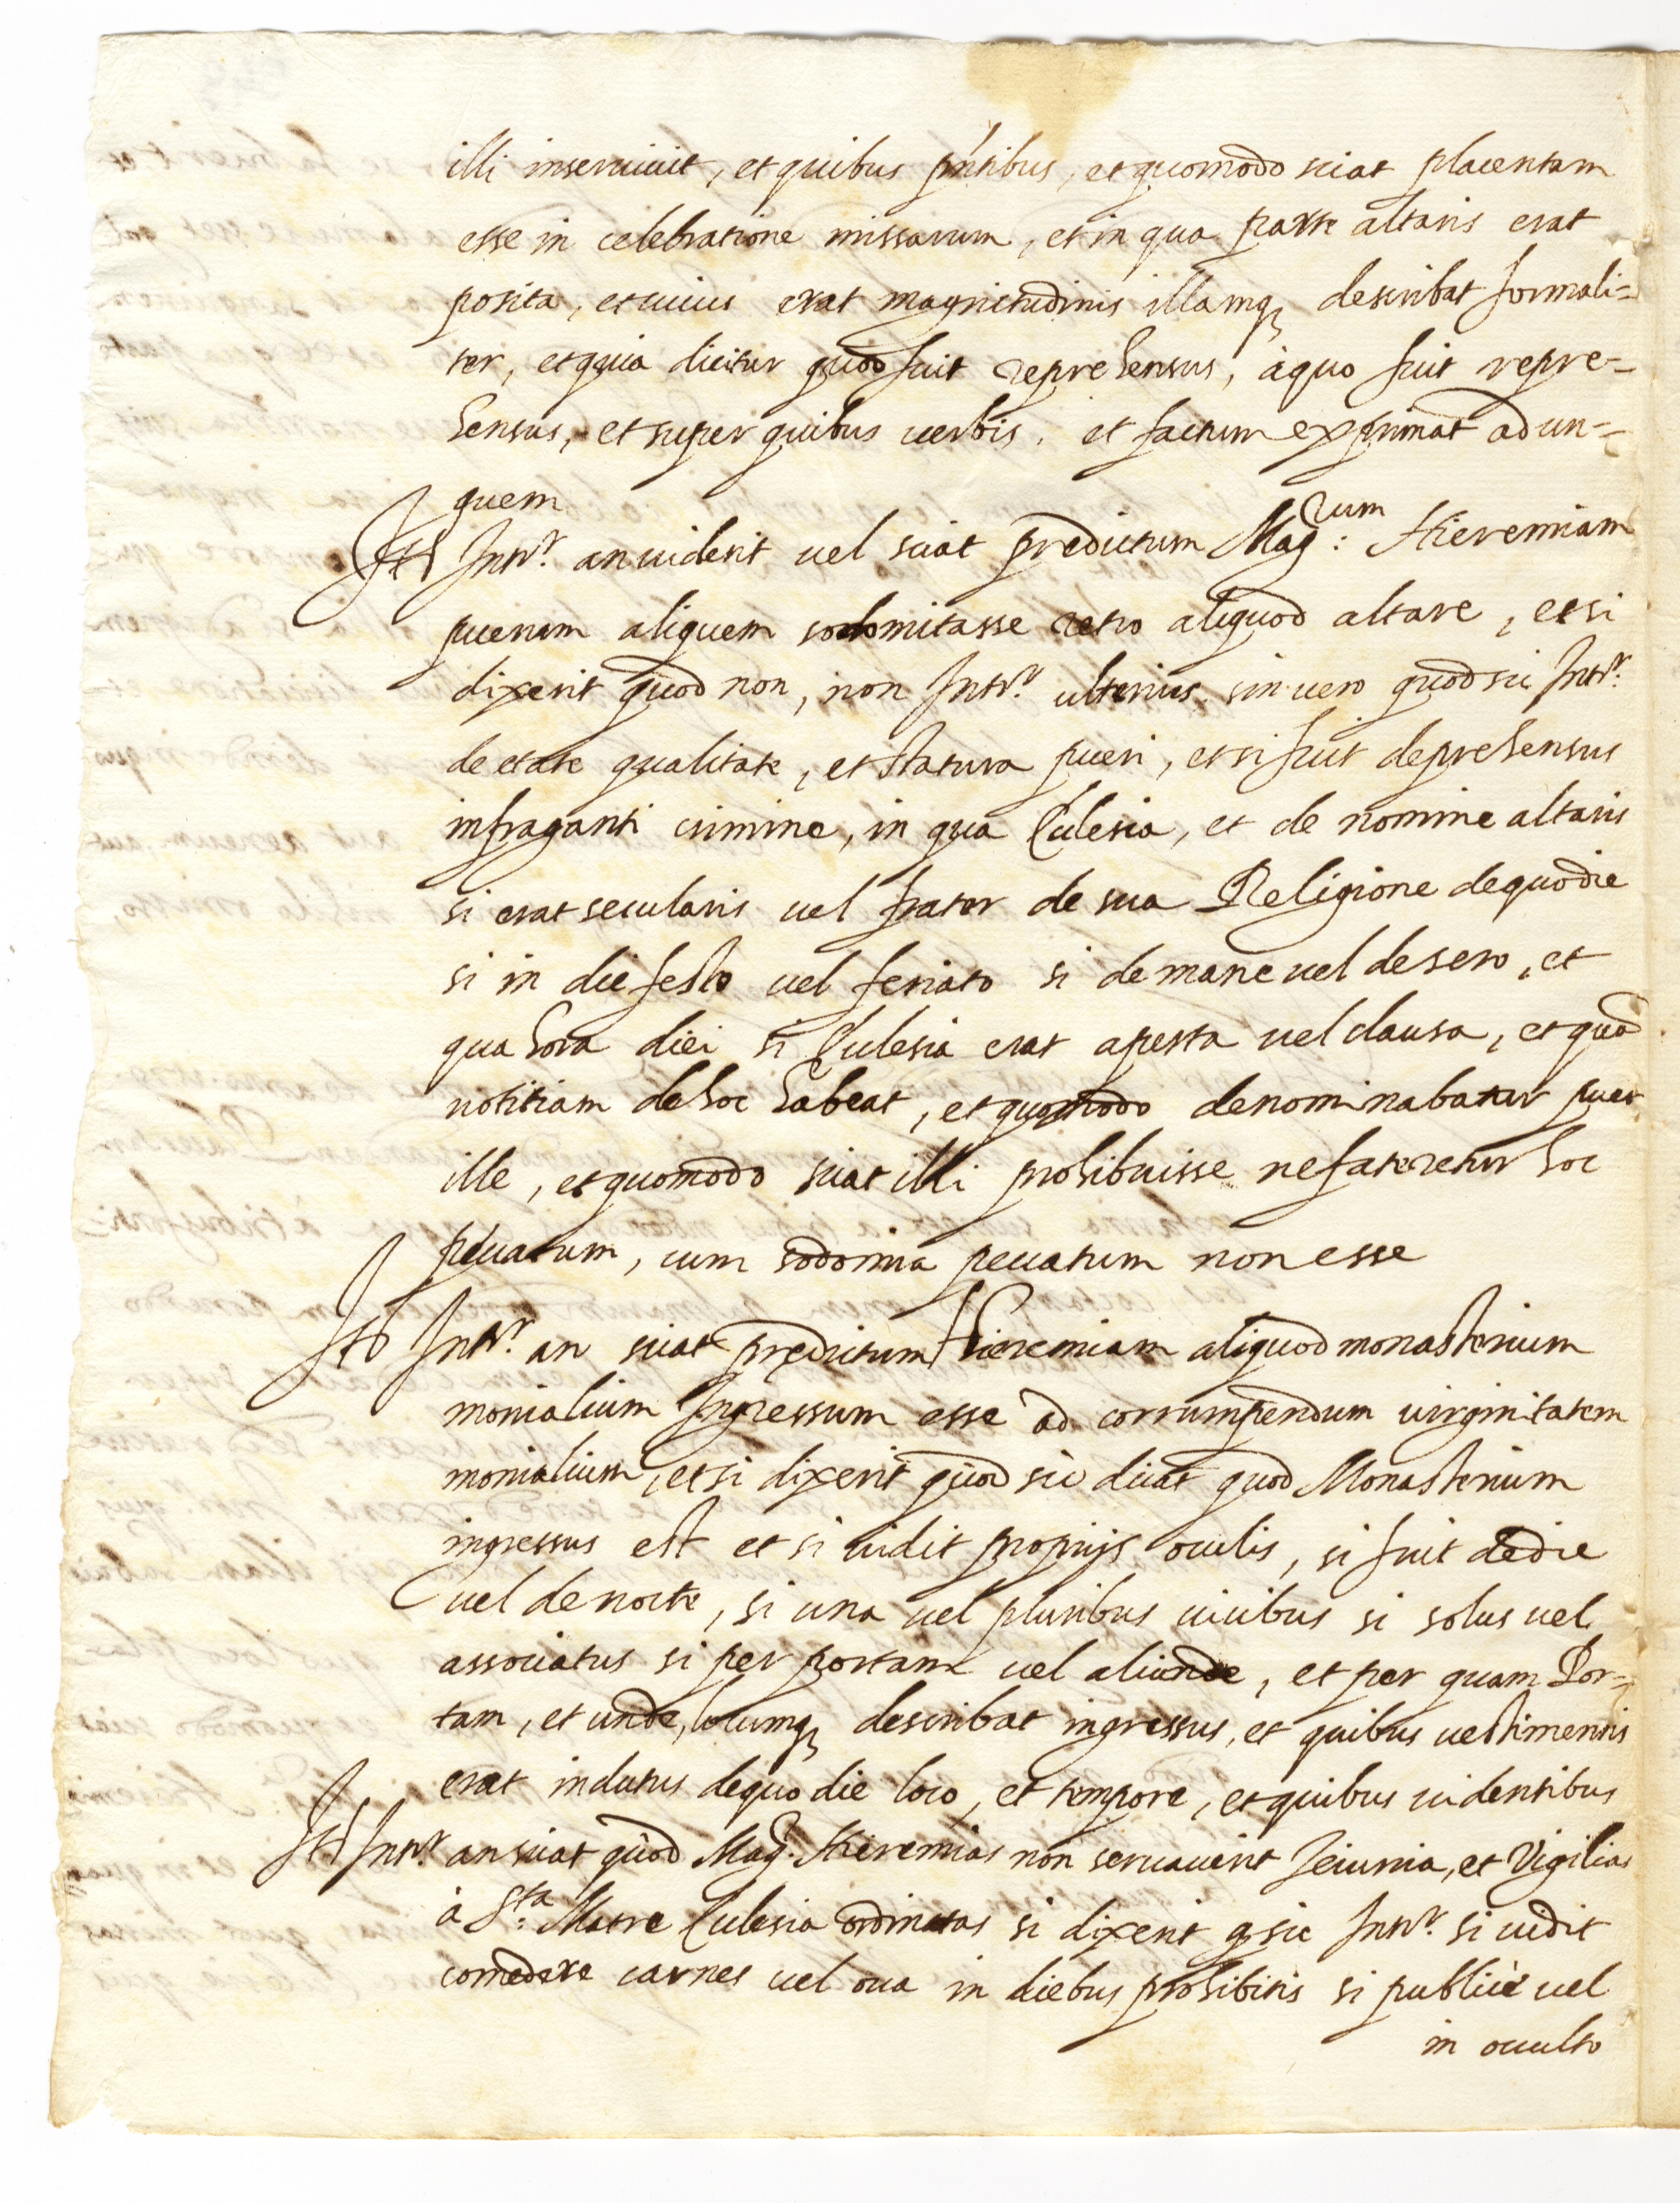 illi inseruiuit, et quibus pntibus, et quomodo sciat placentam
esse in celebratione missarum, et in qua parte altaris erat
posita, et cuius erat magnitudinis illamq; describat formali=
ter, et quia dicitur quod fuit reprehensus, à quo fuit repre=
hensus, et super quibus uerbis, et factum exprimat ad un=
guem
Itē Intr.r an uiderit uel sciat predictum Mag:cum Hieremiam
puerum aliquem sodomitasse retro aliquod altare, et si
dixerit quod non, non Intr.r ulterius, sin uero quod sic Intr.r
de etate qualitate, et statura pueri, et si fuit deprehensus
infraganti crimine, in qua Eclesia, et de nomine altaris
si erat secularis uel frater de sua Religione de quo die
si in die festo uel feriato si de mane uel de sero, et
qua hora diei si Eclesia erat aperta uel clausa, et quod
notitiam de hoc habeat, et quomodo denominabatur puer
ille, et quomodo sciat illi prohibuisse ne fateretur hoc
peccatum, cum sodomia peccatum non esse
Itē Intr.r an sciat predictum Hieremiam aliquod monasterium
monialium Ingressum esse ad corrumpendum uirginitatem
monialium, et si dixerit quod sic dicat quod Monasterium
ingressus est et si uidit proprijs oculis, si fuit de die
uel de nocte, si una uel pluribus uicibus si solus uel
associatus si per portam uel aliunde, et per quam Por=
tam, et unde, locumq; describat ingressus, et quibus uestimentis
erat indutus de quo die loco, et tempore, et quibus uidentibus
Itē Intr.r an sciat quod Mag. Hieremias non seruauerit Jeiunia, et Vigilias
à S:ta Matre Eclesia ordinatas si dixerit q sic Intr.r si uidit
comedere carnes uel oua in diebus prohibitis si publicè uel
in occulto